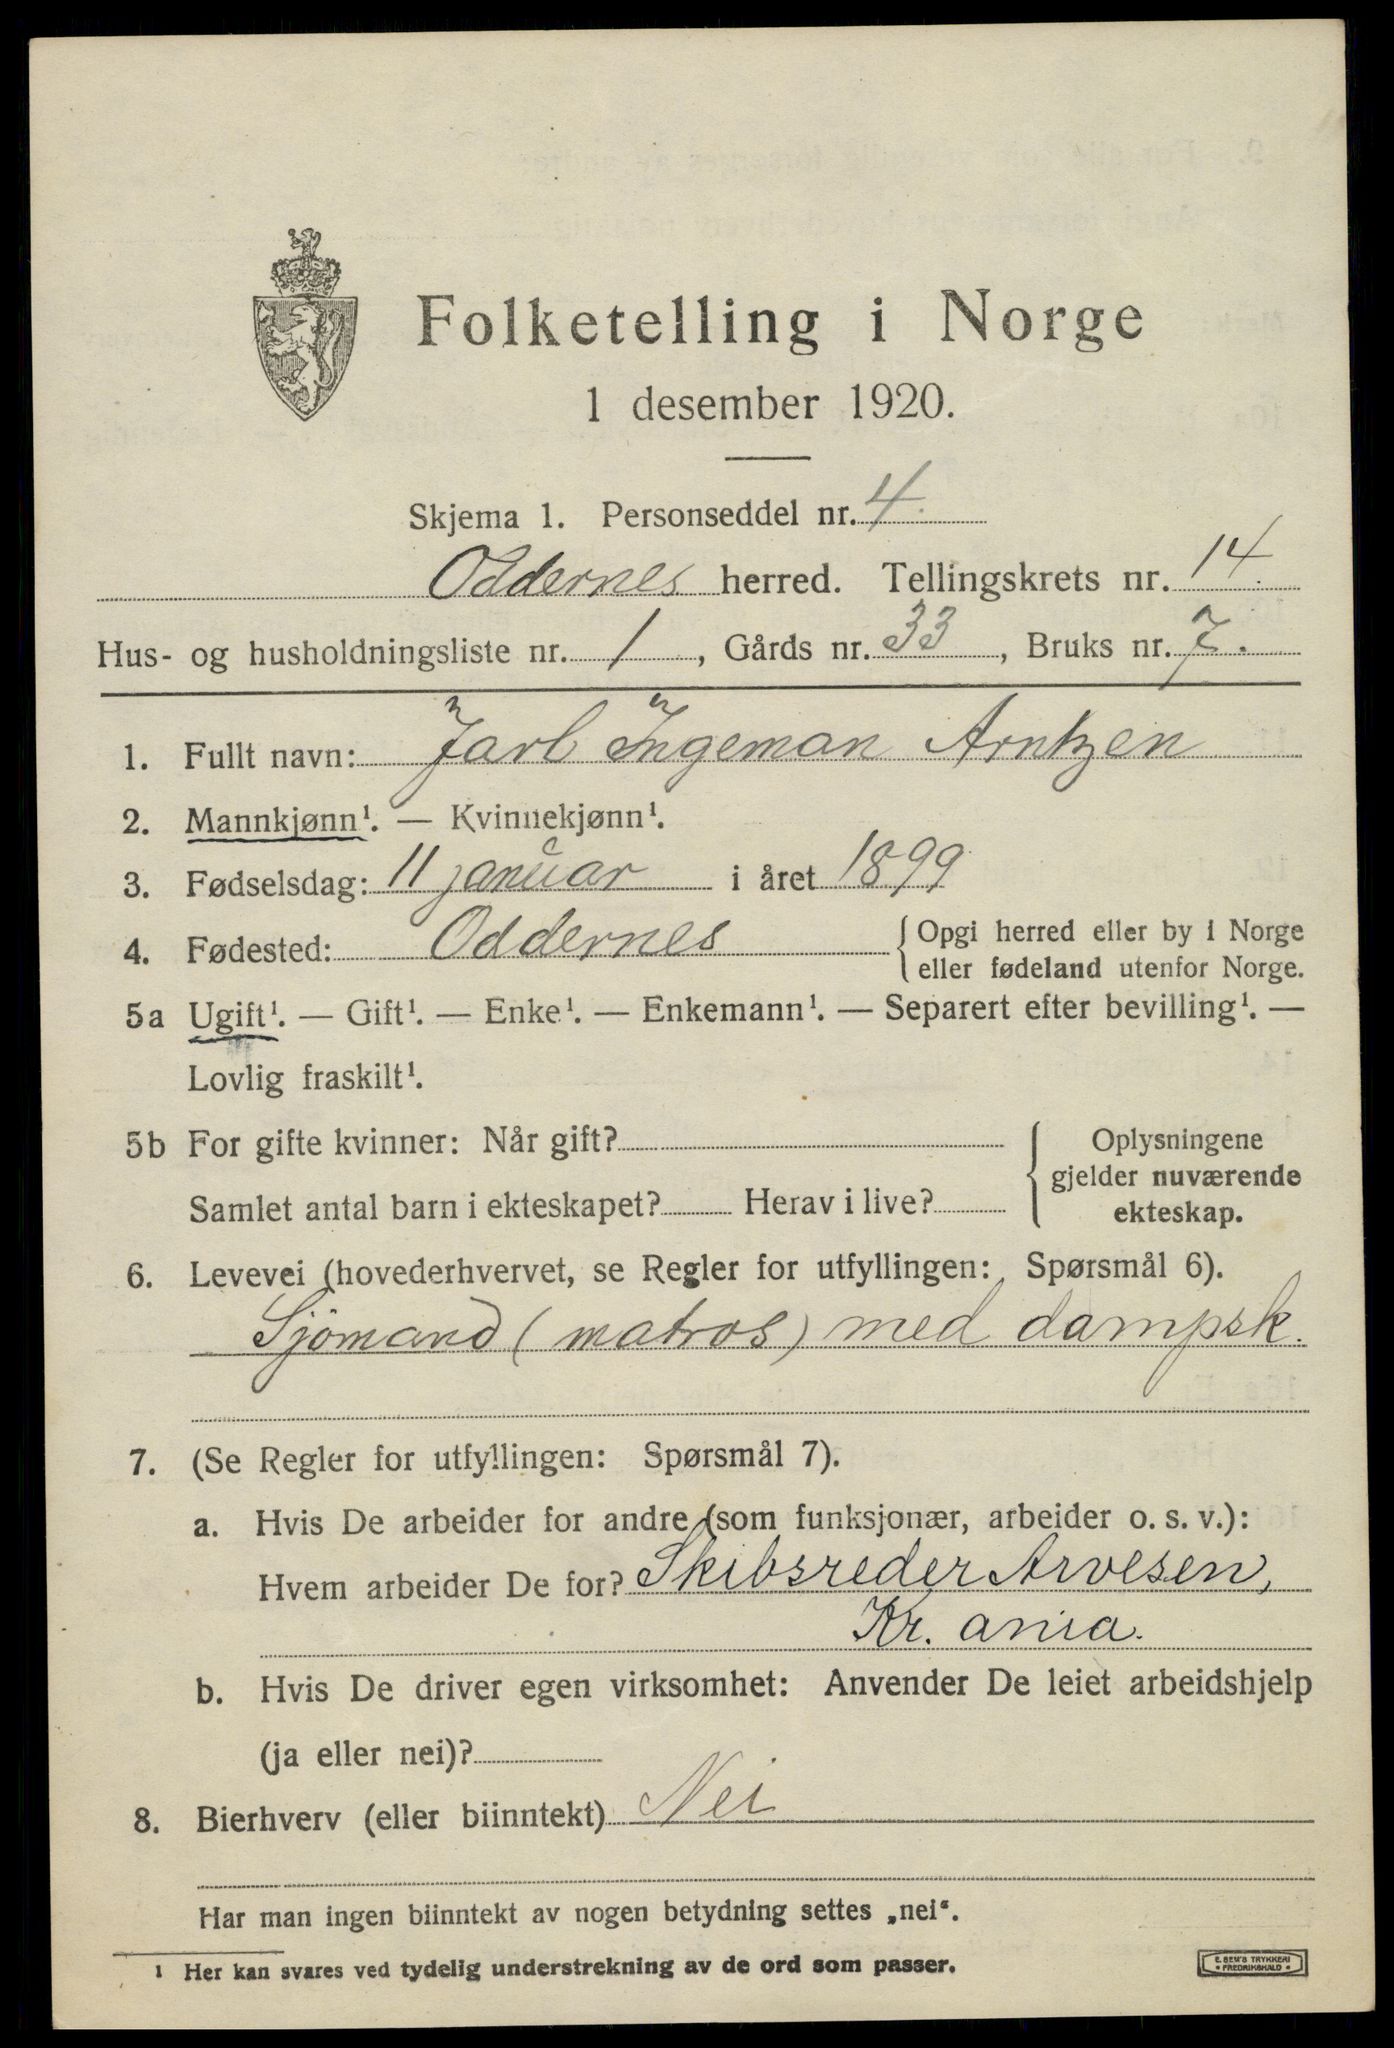 Folketelling i Norge
1 desember 1920.
Skjema 1. Personseddel nr. 4.
Oddernes herred. Tellingskrets nr. 14.
Hus- og husholdningsliste nr. 1, Gårds nr. 33, Bruks nr. 7.
1. Fullt navn: Jarl Ingeman Arntzen
2. Mannkjønn¹. — Kvinnekjønn¹.
3. Fødselsdag: 11 januar i året 1899
4. Fødested: Oddernes { Opgi herred eller by i Norge
eller fødeland utenfor Norge.
5a Ugift¹. — Gift¹. — Enke¹. — Enkemann¹. — Separert efter bevilling¹. —
Lovlig fraskilt¹.
5b For gifte kvinner: Når gift?
Samlet antal barn i ekteskapet? Herav i live?
Oplysningene
gjelder nuværende
ekteskap.
6. Levevei (hovederhvervet, se Regler for utfyllingen: Spørsmål 6).
Sjömand (matros) med dampsk.
7. (Se Regler for utfyllingen: Spørsmål 7).
a. Hvis De arbeider for andre (som funksjonær, arbeider o. s. v.):
Hvem arbeider De for? Skibsreder Arvesen,
Kr. ania.
b. Hvis De driver egen virksomhet: Anvender De leiet arbeidshjelp
(ja eller nei)?
8. Bierhverv (eller biinntekt) Nei
Har man ingen biinntekt av nogen betydning settes „nei“.
¹ Her kan svares ved tydelig understrekning av de ord som passer.
E. SEM'S TRYKKERI
• FREDRIKSHALD •